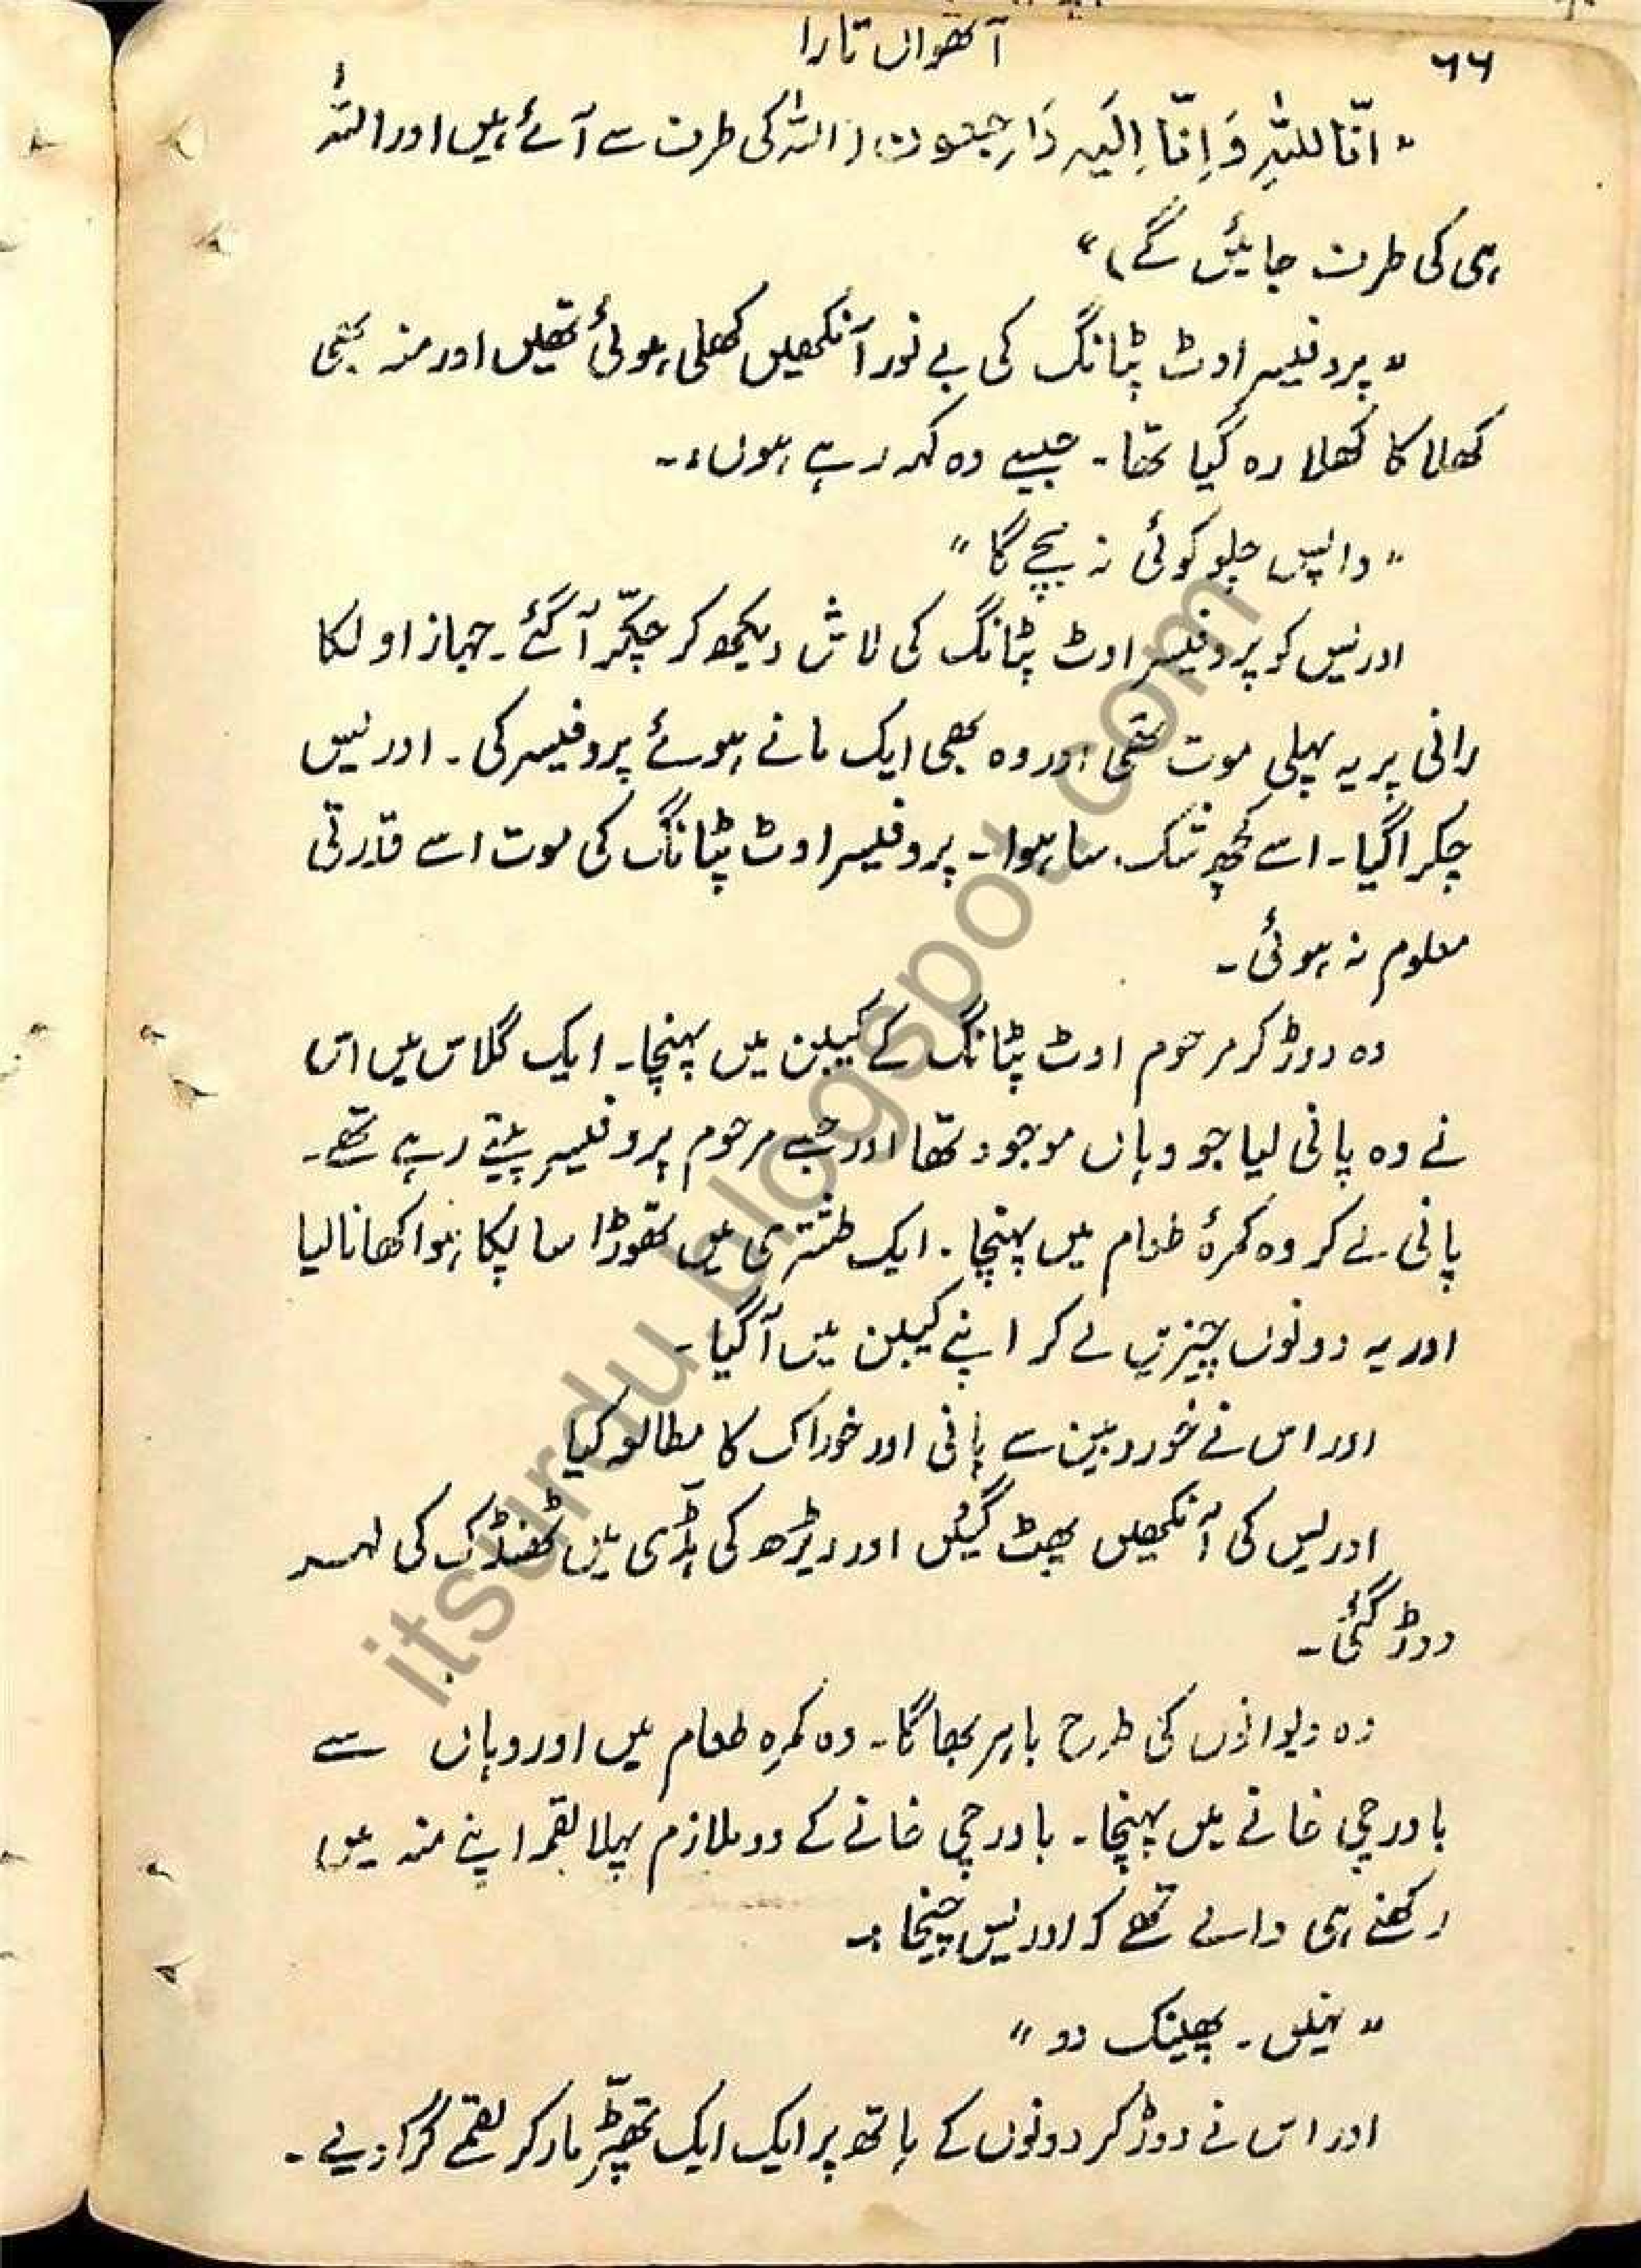 ٦٦
آٹھواں تارا
"انّا للہِ وَ اِنّا اِلَیہِ رَاجِعون (اللہ کی طرف سے آئے ہیں اور اللہ
ہی کی طرف جائیں گے)"
"پروفیسر اوٹ پٹانگ کی بے نور آنکھیں کھلی ہوئی تھیں اور منہ بھی
کھلا کا کھلا رہ گیا تھا۔ جیسے وہ کہہ رہے ہوں۔
"واپس چلو کوئی نہ بچے گا"
ادریس کو پروفیسر اوٹ پٹانگ کی لاش دیکھ کر چکّر آ گئے۔ جہاز اولکا
رانی پر یہ پہلی موت تھی اور وہ بھی ایک مانے ہوئے پروفیسر کی۔ ادریس
چکرا گیا۔ اسے کچھ شک سا ہوا۔ پروفیسر اوٹ پٹانگ کی موت اسے قدرتی
معلوم نہ ہوئی۔
وہ دوڑ کر مرحوم اوٹ پٹانگ کے کیبن میں پہنچا۔ ایک گلاس میں اس
نے وہ پانی لیا جو وہاں موجود تھا اور جسے مرحوم پروفیسر پیتے رہے تھے۔
پانی لے کر وہ کمرۂ طعام میں پہنچا۔ ایک طشتری میں تھوڑا سا پکا ہوا کھانا لیا
اور یہ دونوں چیزیں لے کر اپنے کیبن میں آ گیا۔
اور اس نے خوردبین سے پانی اور خوراک کا مطالعہ کیا
ادریس کی آنکھیں پھٹ گئیں اور ریڑھ کی ہڈّی میں ٹھنڈک کی لہر
دوڑ گئی۔
وہ دیوانوں کی طرح باہر بھاگا۔ وہ کمرہ طعام میں اور وہاں سے
باورچی خانے میں پہنچا۔ باورچی خانے کے دو ملازم پہلا لقمہ اپنے منہ میں
رکھنے ہی والے تھے کہ ادریس چیخا :۔
"نہیں۔ پھینک دو"
اور اس نے دوڑ کر دونوں کے ہاتھ پر ایک ایک تھپّڑ مار کر لقمے گرا دیے۔
itsurdu.blogspot.com